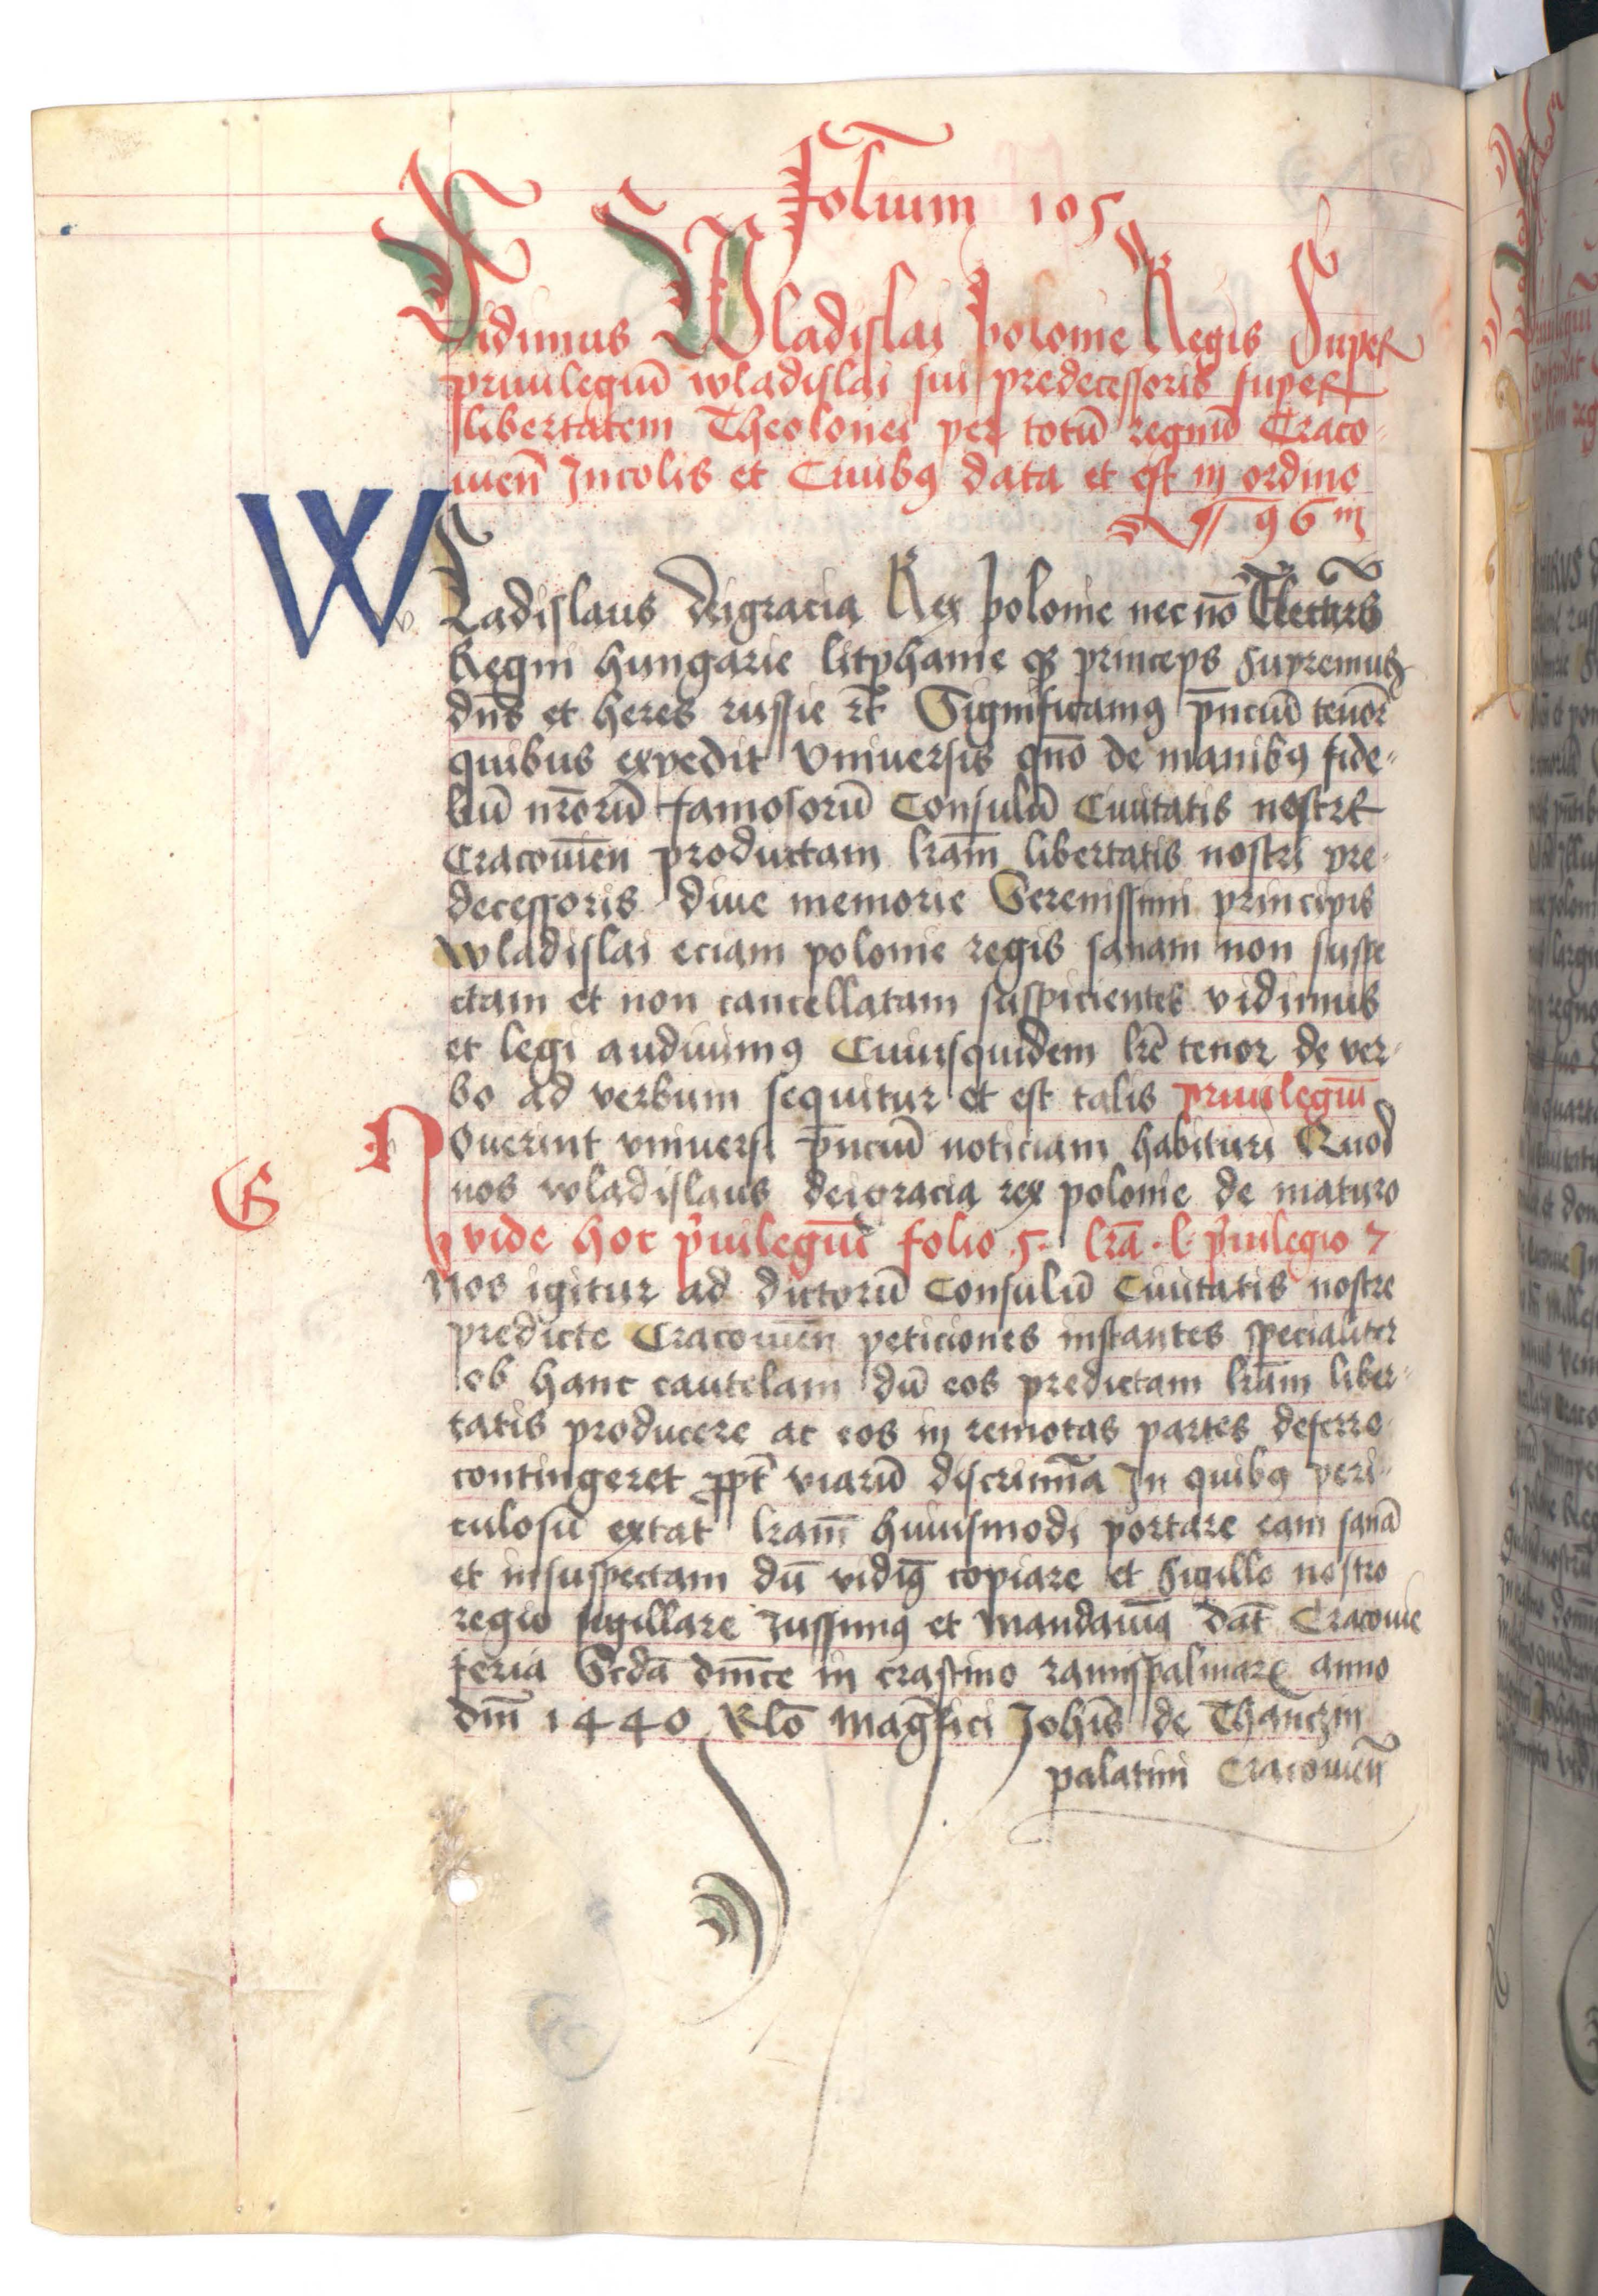 Folium 105
Vidimus Wladislai Polonie Regis Super
priuilegiū wladislai sui predecessoris super
libertatem Theolonei per totū regnū Craco-
uieñ Incolis et Ciuibꝯ data et est in ordine
96
Wladislaus deigracia Rex polonie nec nō Electus
Regni hungarie litphanie qꝫ princeps supremus
dns et heres russie rc̄ Significamꝯ p̄nciū tenore
quibus expedit vniuersis qn̄o de manibꝯ fide-
liū nr̄orū famosorū Consulū Ciuitatis nostre
Cracouien̄ productam lr̄am libertatis nostri pre-
decessoris diue memorie Serenissimi principis
wladislai eciam polonie regis sanam non suspe
ctam et non cancellatam suspicientes vidimus
et legi audiuimꝯ Cuiusquidem lr̄e tenor de ver-
bo ad verbum sequitur et est talis priuilegiū
Nouerint vniuersi p̄nciū noticiam habituri Quod
nos wladislaus deigracia rex polonie de maturo
G
vide hoc p̄uilegiū folio .5. lr̄a .l. p̄uilegio 7
Nos igitur ad dictorū Consulū Ciuitatis nostre
predicte Cracouien̄ peticiones instantes specialiter
ob hanc cautelam dū eos predictam lr̄am liber-
tatis producere ac eos in remotas partes deferre
contingeret ꝓpt̄ viarū discrimīa In quibꝯ peri-
culosū extat lr̄am huiusmodi portare eam sanā
et insuspectam dū vidimꝯ copiare et sigillo nostro
regio sigillare Iussimꝯ et mandauimꝯ dat̄ Cracouie
feria Scd̄a dn̄ice in crastino ramispalmarꝝ anno
dn̄i 1440 Rl̄o mag̅fici Joh̄is de Thanczin
palatini Cracouien̄